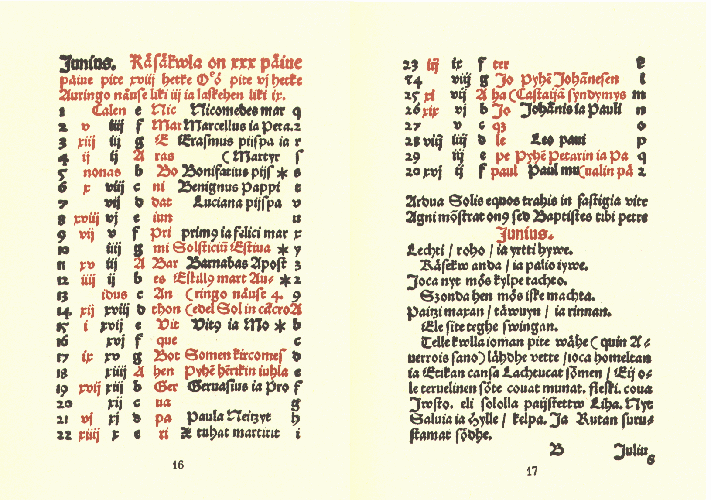 Junius. Kåsåkwla on xxx påiue
påiue pite xviij hetke O⁹ó pite vj hetke
Auringo nåuse liki iij ia laskehen liki ix.
1 Calen e Nic Nicomedes mar q
2 v iiij f Mar Marcellus ia Petra. 2
3 xiij iij g E Erasmus piispa ia r
4 ij ij A ras (Martyr s
5 nonas b Bo Bonifacius pijs * t
6 x viij c ni Benignus Pappi t
7 vij d dat Luciana pijspa v
8 xviij vj e iun u
9 vij v f Pri prim9 ia felici mar x
10 iiij g mi Solsticiū Estiua * y
11 xv iij A Bar Barnabas Apost 3
12 iiij ij b es Eskill9 mart Au- * 2
13 idus c An (ringo nåuse 4. 9
14 xij xviij d thon (edel Sol in cācro A
15 i xvij e Vit Vit9 ia Mo * b
16 xvj f que c
17 ix xv g Bot Somen kircomes d
18 xiiij A hen Pyhē hērikin iuhla e
19 xvij xiij b Ger Geruasius ia Pro f
20 xij c ua g
21 vj xj d pa Paula Neitzyt h
22 xiiij x e ri X tuhat martirit i
16
23 iij ix f ter k
24 viij g Jo Pyhē Johānesen l
25 xi vij A ha (Castaijā syndymys m
26 xix vj b Jo Johānis ia Pauli n
27 v c q3 o
28 viij iiij d le Leo paui p
29 iij e pe Pyhē Petarin ia Pa q
30 xvj ij f paul Paul mu (ualin på 2
Ardua Solis equos trahis in fastigia vite
Agni mōstrat on9 sed Baptistes tibi petre
Junius.
Lechti / roho / ia yrtti hywe.
Kåsekw anda / ia palio iywe.
Joca nyt mös kylpe tacheo.
Szonda hen mös iske machta.
Paitzi maxan / tåwuyn / ia rinnan.
Ele site teghe swingan.
Telle kwlla ioman pite wåhe (quin A-
uerrois sano) låhdhe vette / ioca homeltan
ia Etikan cansa Lacheucat sömen / Eij o-
le terueelinen söte couat munat. fleski. coua
Jwsto. eli sololla paijstettw Liha. Nyt
Saluia ia Hylle / kelpa. Ja Rutan suru-
stamat södhe.
B Julius
17